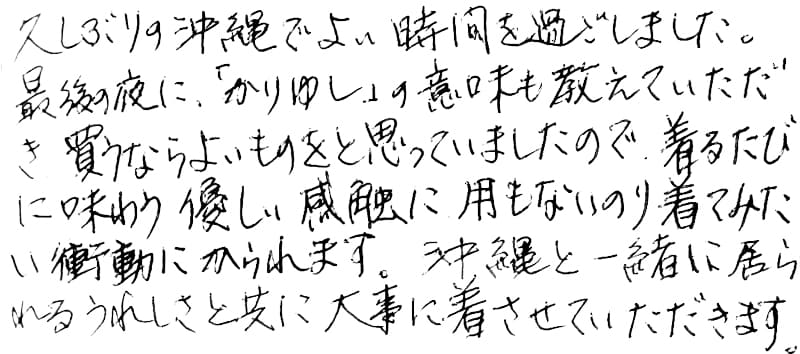 久しぶりの沖縄でよい時間を過ごしました。
最後の夜に、「かりゆし」の意味も教えていただ
き 買うならよいものをと思っていましたので 着るたび
に味わう優しい感触に 用もないのり着てみた
い衝動にかられます。 沖縄と一緒に居ら
れるうれしさと共に 大事に着させていただきます。